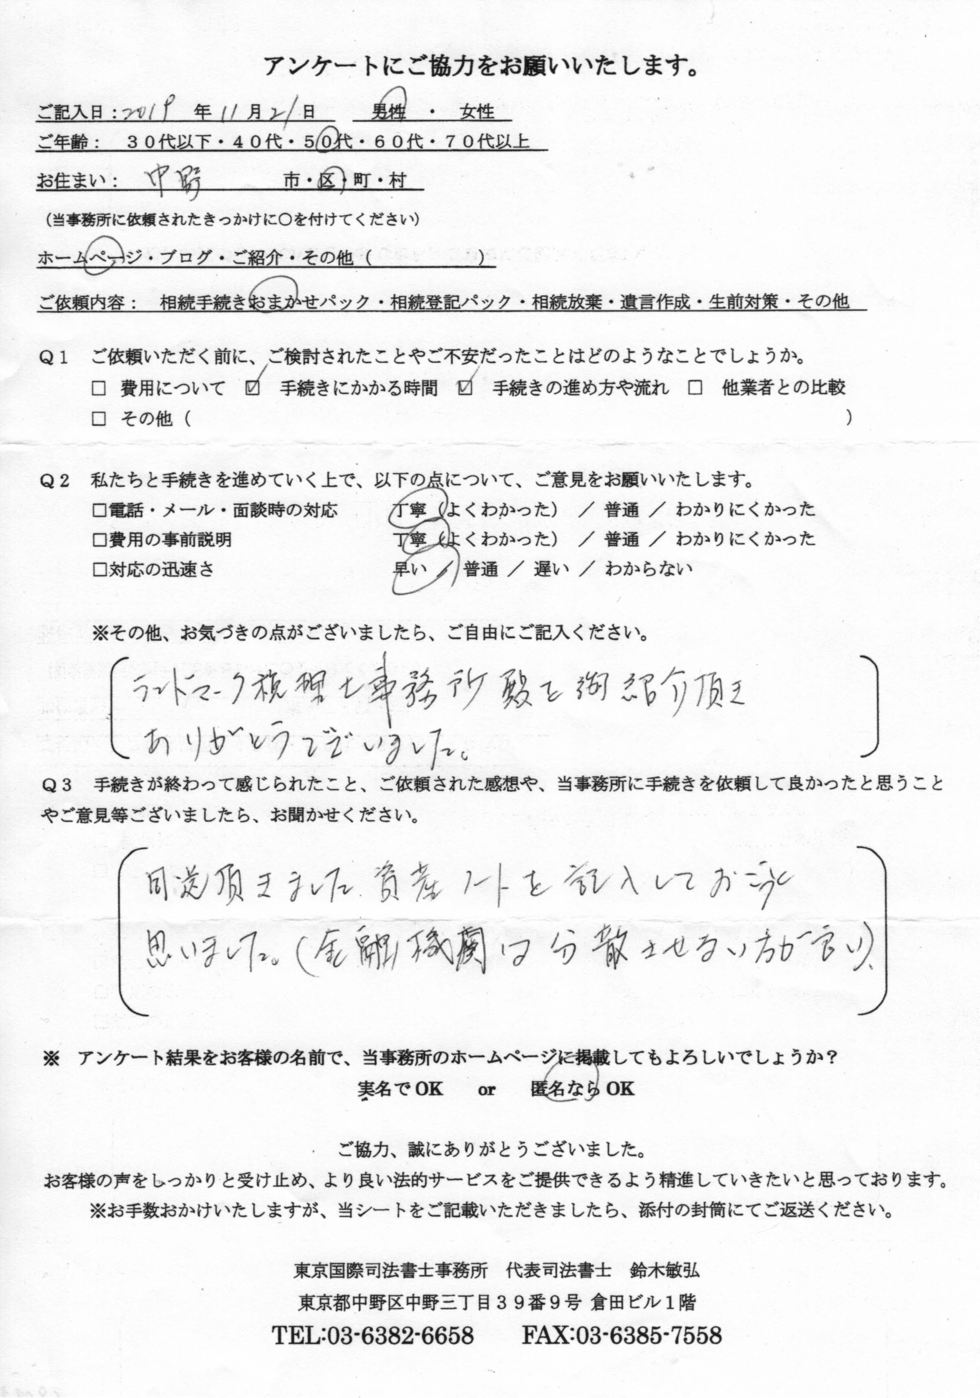 アンケートにご協力をお願いいたします。
ご記入日：2019 年 11月 21日 男性 ・ 女性
ご年齢： 30代以下・40代・50代・60代・70代以上
お住まい： 中野 市・区・町・村
（当事務所に依頼されたきっかけに○を付けてください）
ホームページ・ブログ・ご紹介・その他（ ）
ご依頼内容： 相続手続きおまかせパック・相続登記パック・相続放棄・遺言作成・生前対策・その他
Q1 ご依頼いただく前に、ご検討されたことやご不安だったことはどのようなことでしょうか。
□ 費用について ☑ 手続きにかかる時間 ☑ 手続きの進め方や流れ □ 他業者との比較
□ その他（ ）
Q2 私たちと手続きを進めていく上で、以下の点について、ご意見をお願いいたします。
□電話・メール・面談時の対応 丁寧（よくわかった） ／ 普通 ／ わかりにくかった
□費用の事前説明 丁寧（よくわかった） ／ 普通 ／ わかりにくかった
□対応の迅速さ 早い ／ 普通 ／ 遅い ／ わからない
※その他、お気づきの点がございましたら、ご自由にご記入ください。
ランドマーク税理士事務所殿を御紹介頂き
ありがとうございました。
Q3 手続きが終わって感じられたこと、ご依頼された感想や、当事務所に手続きを依頼して良かったと思うこと
やご意見等ございましたら、お聞かせください。
同送頂きました資産ノートを記入しておこうと
思いました。（金融機関は分散させない方が良い）、
※ アンケート結果をお客様の名前で、当事務所のホームページに掲載してもよろしいでしょうか？
実名でOK or 匿名ならOK
ご協力、誠にありがとうございました。
お客様の声をしっかりと受け止め、より良い法的サービスをご提供できるよう精進していきたいと思っております。
※お手数おかけいたしますが、当シートをご記載いただきましたら、添付の封筒にてご返送ください。
東京国際司法書士事務所 代表司法書士 鈴木敏弘
東京都中野区中野三丁目39番9号 倉田ビル1階
TEL:03-6382-6658 FAX:03-6385-7558